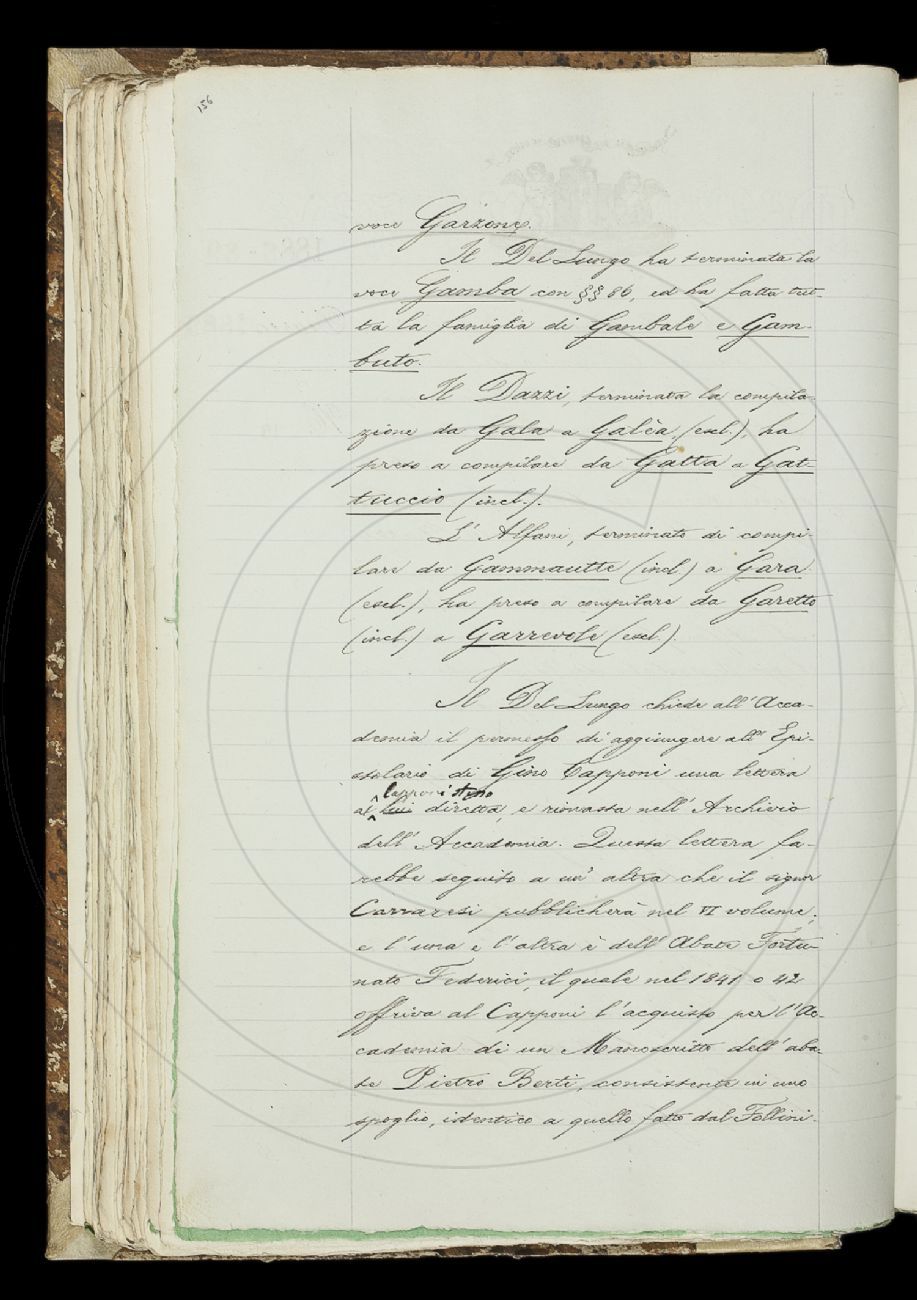 156
voce Garzone.
Il Del Lungo ha terminata la
voce Gamba con §§ 86, ed ha fatta tut-
ta la famiglia di Gambale e Gam-
buto.
Il Dazzi, terminata la compila-
zione da Gala a Galèa (escl.), ha
preso a compilare da Gatta a Gat-
tuccio (incl.).
L'Alfani, terminato di compi-
lare da Gammautte (incl.) a Gara
(escl.), ha preso a compilare da Garetto
(incl.) a Garrevole (escl.).
Il Del Lungo chiede all'Acca-
demia il permesso di aggiungere all' Epi-
stolario di Gino Capponi una lettera
Capponi stesso
al lui diretta, e rimasta nell'Archivio
dell'Accademia. Questa lettera fa-
rebbe seguito a un' altra che il signor
Carraresi pubblicherà nel VI volume;
e l'una e l'altra è dell'Abate Fortu-
nato Federici, il quale nel 1841 o 42
offriva al Capponi l'acquisto per l'Ac-
cademia di un Manoscritto dell'aba-
te Pietro Berti, consistente in uno
spoglio, identico a quello fatto dal Follini